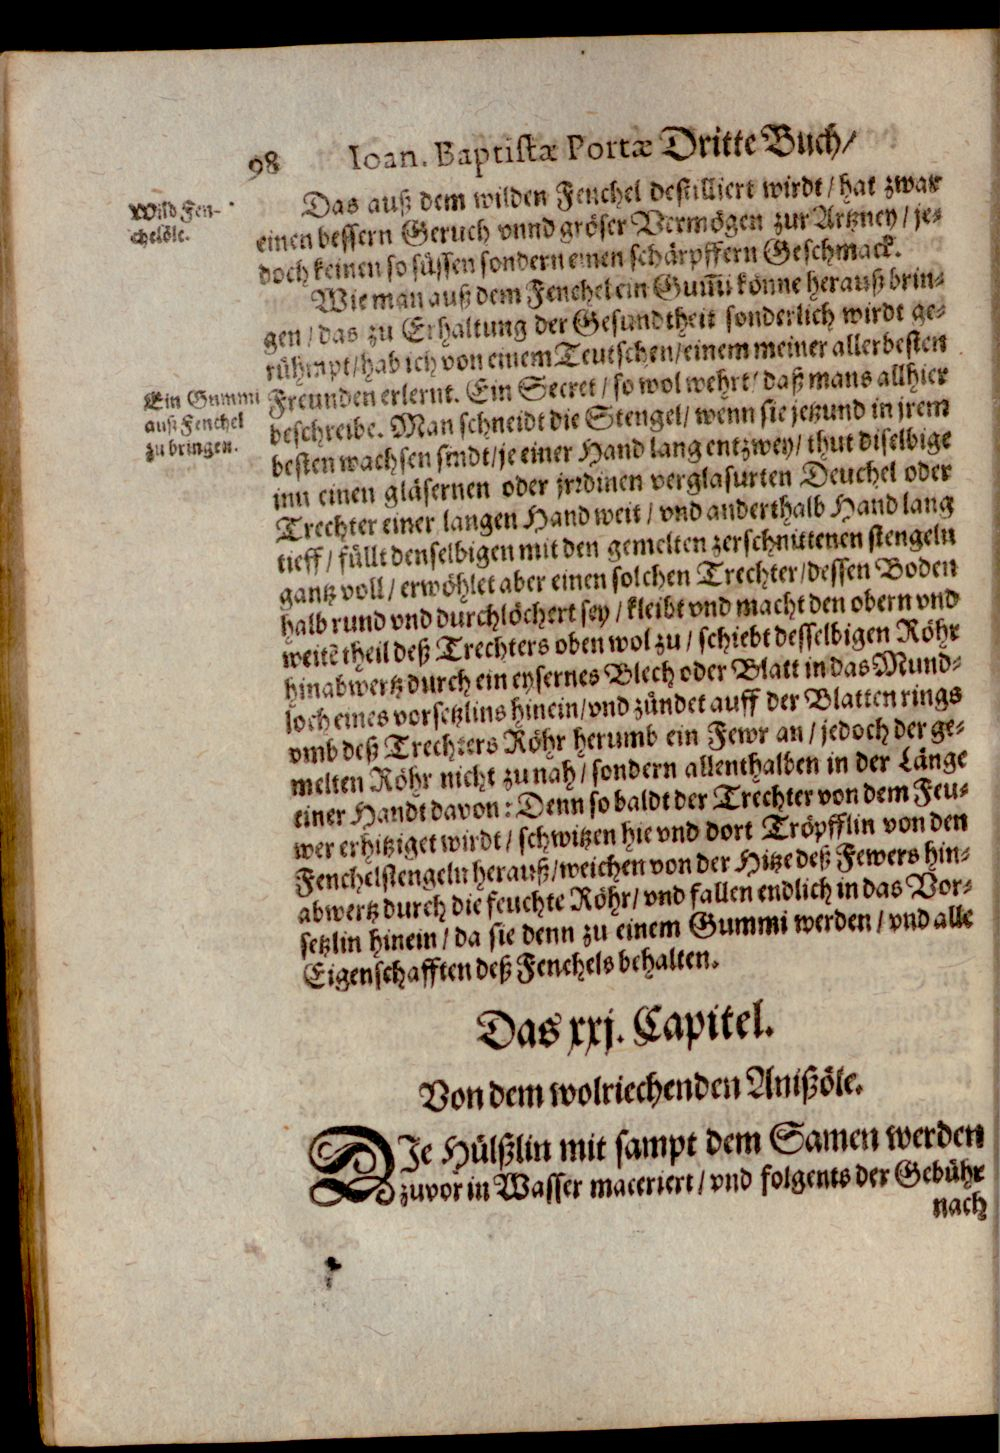 98 Ioan. Baptistæ Portæ Dritte Buch/
Wild Fen-
chelöle.
Das auß dem wilden Fenchel destilliert wirdt / hat zwar
einen bessern Geruch vnnd gröser Vermögen zur Artzney / je-
doch keinen so süssen sondern einen schärpffern Geschmack.
Wie man auß dem Fenchel ein Gum̃i könne herauß brin-
gen / das zu Erhaltung der Gesundtheit sonderlich wirdt ge-
rühmpt / hab ich von einem Teutschen / einem meiner allerbesten
Ein Gummi
auß Fenchel
zu bringen.
Freunden erlernt. Ein Secret / so wol wehrt / daß mans allhier
beschreibe. Man schneidt die Stengel / wenn sie jetzund in jrem
besten wachsen sindt / je einer Hand lang entzwey / thut diselbige
inn einen gläsernen oder jrrdinen verglasurten Deuchel oder
Trechter einer langen Hand weit / vnd anderthalb Hand lang
tieff / füllt denselbigen mit den gemelten zerschnittenen stengeln
gantz voll / erwöhlet aber einen solchen Trechter / dessen Boden
halb rund vnd durchlöchert sey / kleibt vnd macht den obern vnd
weitẽ theil deß Trechters oben wol zu / schiebt desselbigen Röhr
hinabwertz durch ein eysernes Blech oder Blatt in das Mund-
loch eines vorsetzlins hinein / vnd zündet auff der Blatten rings
vmb deß Trechters Röhr herumb ein Fewr an / jedoch der ge-
melten Röhr nicht zu nah / sondern allenthalben in der Länge
einer Handt davon : Denn so baldt der Trechter von dem Feu-
wer erhitziget wirdt / schwitzen hie vnd dort Tröpfflin von den
Fenchelstengeln herauß / weichen von der Hitze deß Fewers hin-
abwertz durch die feuchte Röhr / vnd fallen endlich in das Vor-
setzlin hinein / da sie denn zu einem Gummi werden / vnd alle
Eigenschafften deß Fenchels behalten.
Das xxj. Capitel.
Von dem wolriechenden Anißöle.
DIe Hülßlin mit sampt dem Samen werden
zuvor in Wasser maceriert / vnd folgents der Gebühr
nach